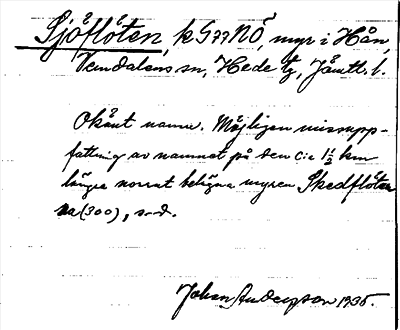 Sjöflöten, k G 77 NÖ, myr i Hån,
Vemdalens sn, Hede tg, Jämtl. l.
Okänt namn. Möjligen missupp-
fattning av namnet på den c:a 1½ km
längre norrut belägna myren Skedflöten
na (300), s.d.
Johan Anderzson 1935.